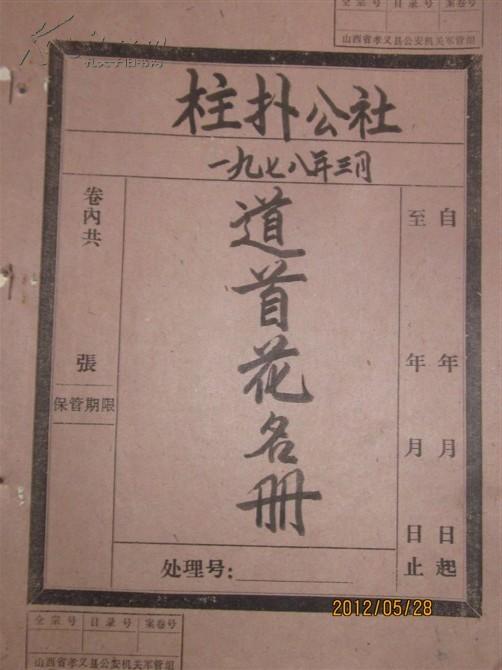 全宗号 目录号 案卷号
山西省孝义县公安机关军管组
柱扑公社
一九七八年三月
自 年 月 日起
至 年 月 日止
道首花名册
卷內共 張
保管期限
处理号:
2012/05/28
全宗号 目录号 案卷号
山西省孝义县公安机关军管组